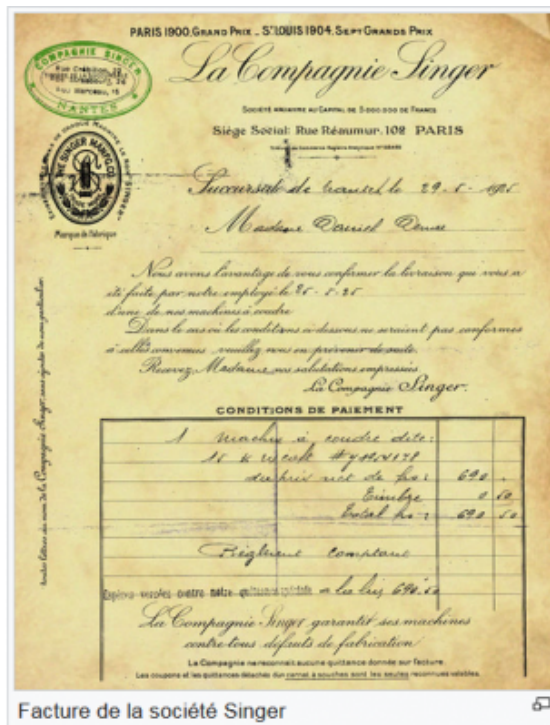 PARIS 1900. GRAND PRIX _ ST LOUIS 1904. SEPT GRANDS PRIX
COMPAGNIE SINGER
NANTES
La Compagnie Singer
SOCIÉTÉ ANONYME AU CAPITAL DE 5 000 000 DE FRANCS
Siège Social: Rue Réaumur, 102 PARIS
THE SINGER MANFG. CO.
Marque de Fabrique
Succursale de Nantes le 29 - 5 - 1925
Madame Daniel
Nous avons l'avantage de vous confirmer la livraison qui vous a
été faite par notre employé le 25 - 5 - 25
d'une de nos machines à coudre
Dans le cas où les conditions ci-dessous ne seraient pas conformes
à celles convenues veuillez nous en prévenir de suite.
Recevez, Madame nos salutations empressées
La Compagnie Singer.
CONDITIONS DE PAIEMENT
1 machine à coudre dite:
15 K
du prix net de frs: 690 .
Timbre 0 50
Total frs: 690 50
Règlement comptant
Espèces versées contre notre quittance 690.50
La Compagnie Singer garantit ses machines
contre tous défauts de fabrication
La Compagnie ne reconnait aucune quittance donnée sur facture.
Les coupons et les quittances détachés d'un carnet à souches sont les seules reconnues valables.
Facture de la société Singer